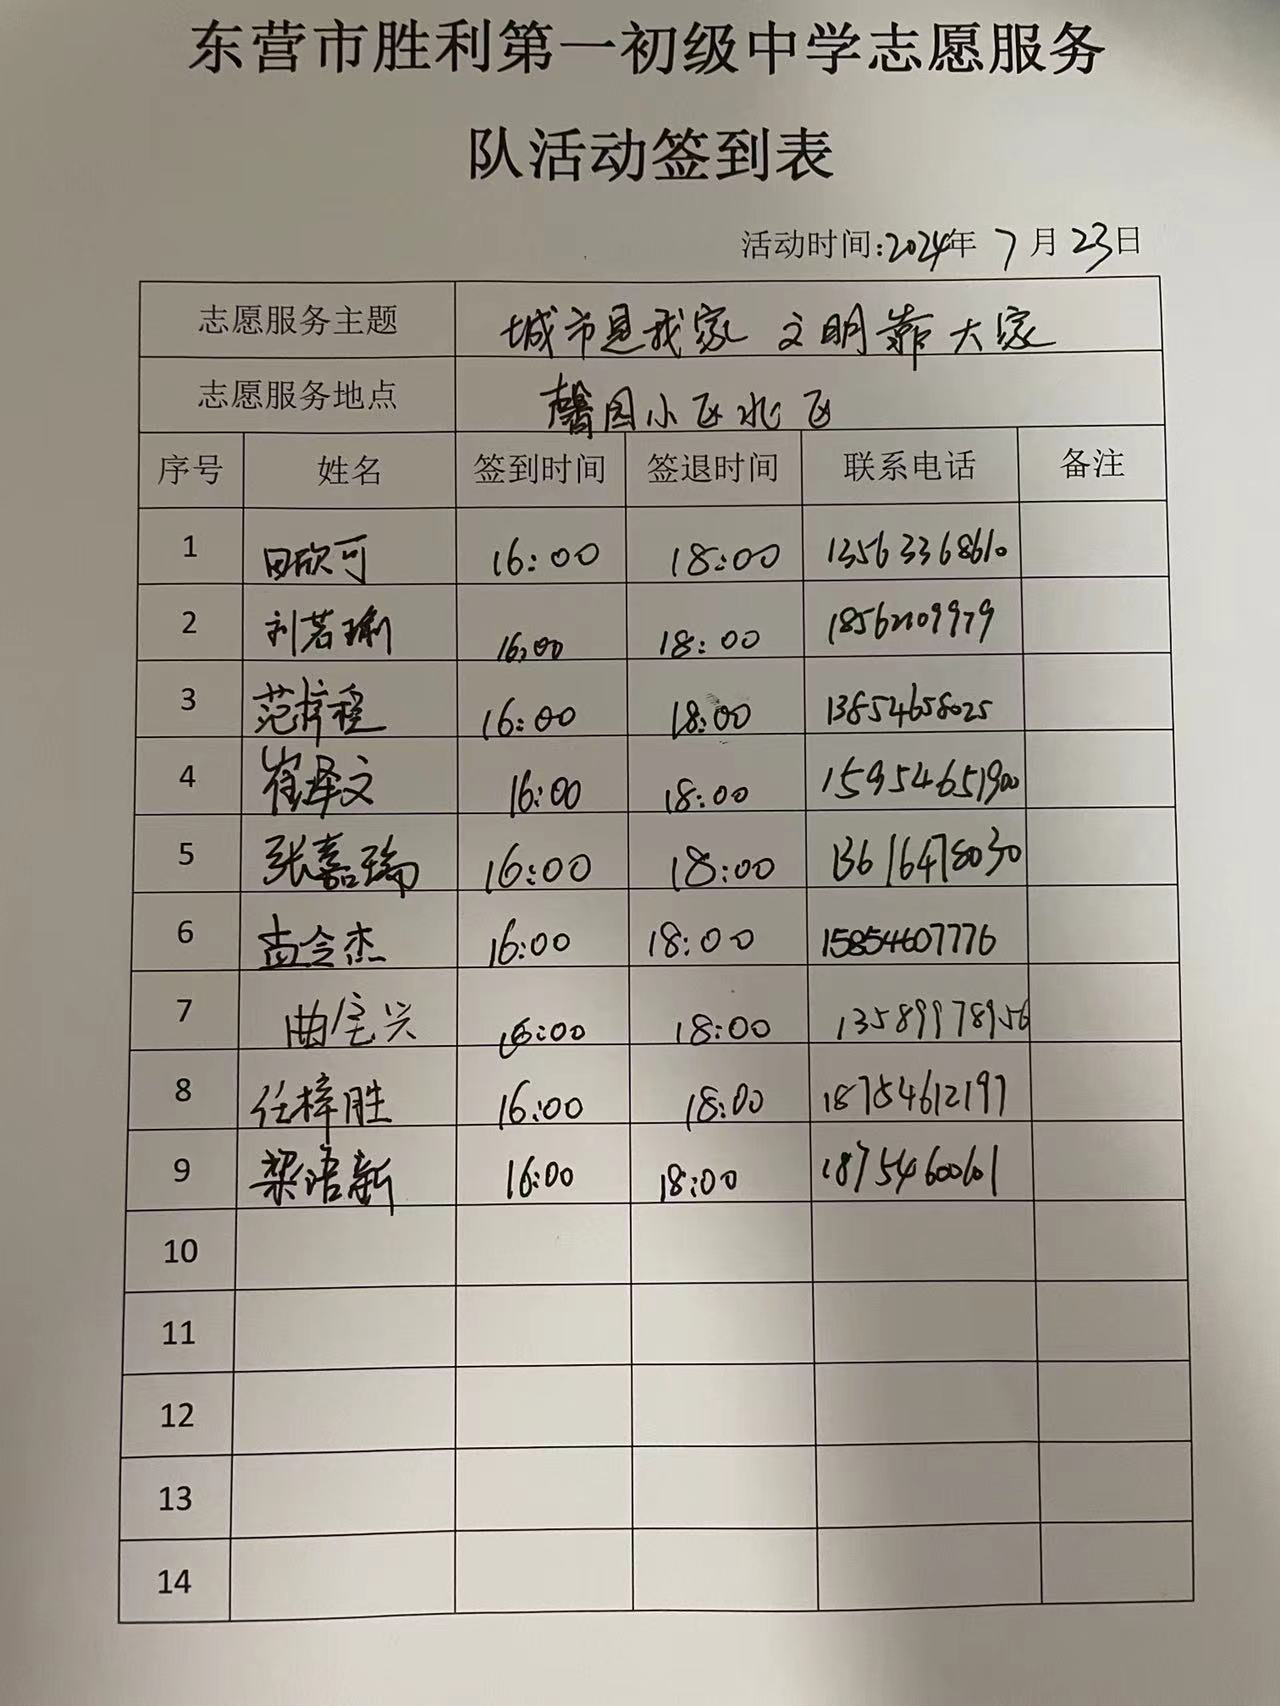 东营市胜利第一初级中学志愿服务
队活动签到表
活动时间:2024年 7月23日
志愿服务主题 城市是我家 文明靠大家
志愿服务地点 馨园小区北区
序号 姓名 签到时间 签退时间 联系电话 备注
1 田欣可 16:00 18:00 13563368610
2 刘若瑜 16:00 18:00 18562109979
3 范梓程 16:00 18:00 13854658025
4 崔泽文 16:00 18:00 15954651900
5 张嘉瑞 16:00 18:00 13616478030
6 孟令杰 16:00 18:00 15854607776
7 曲宝兴 16:00 18:00 13589978956
8 任梓胜 16:00 18:00 18754612197
9 梁语新 16:00 18:00 18754600601
10
11
12
13
14